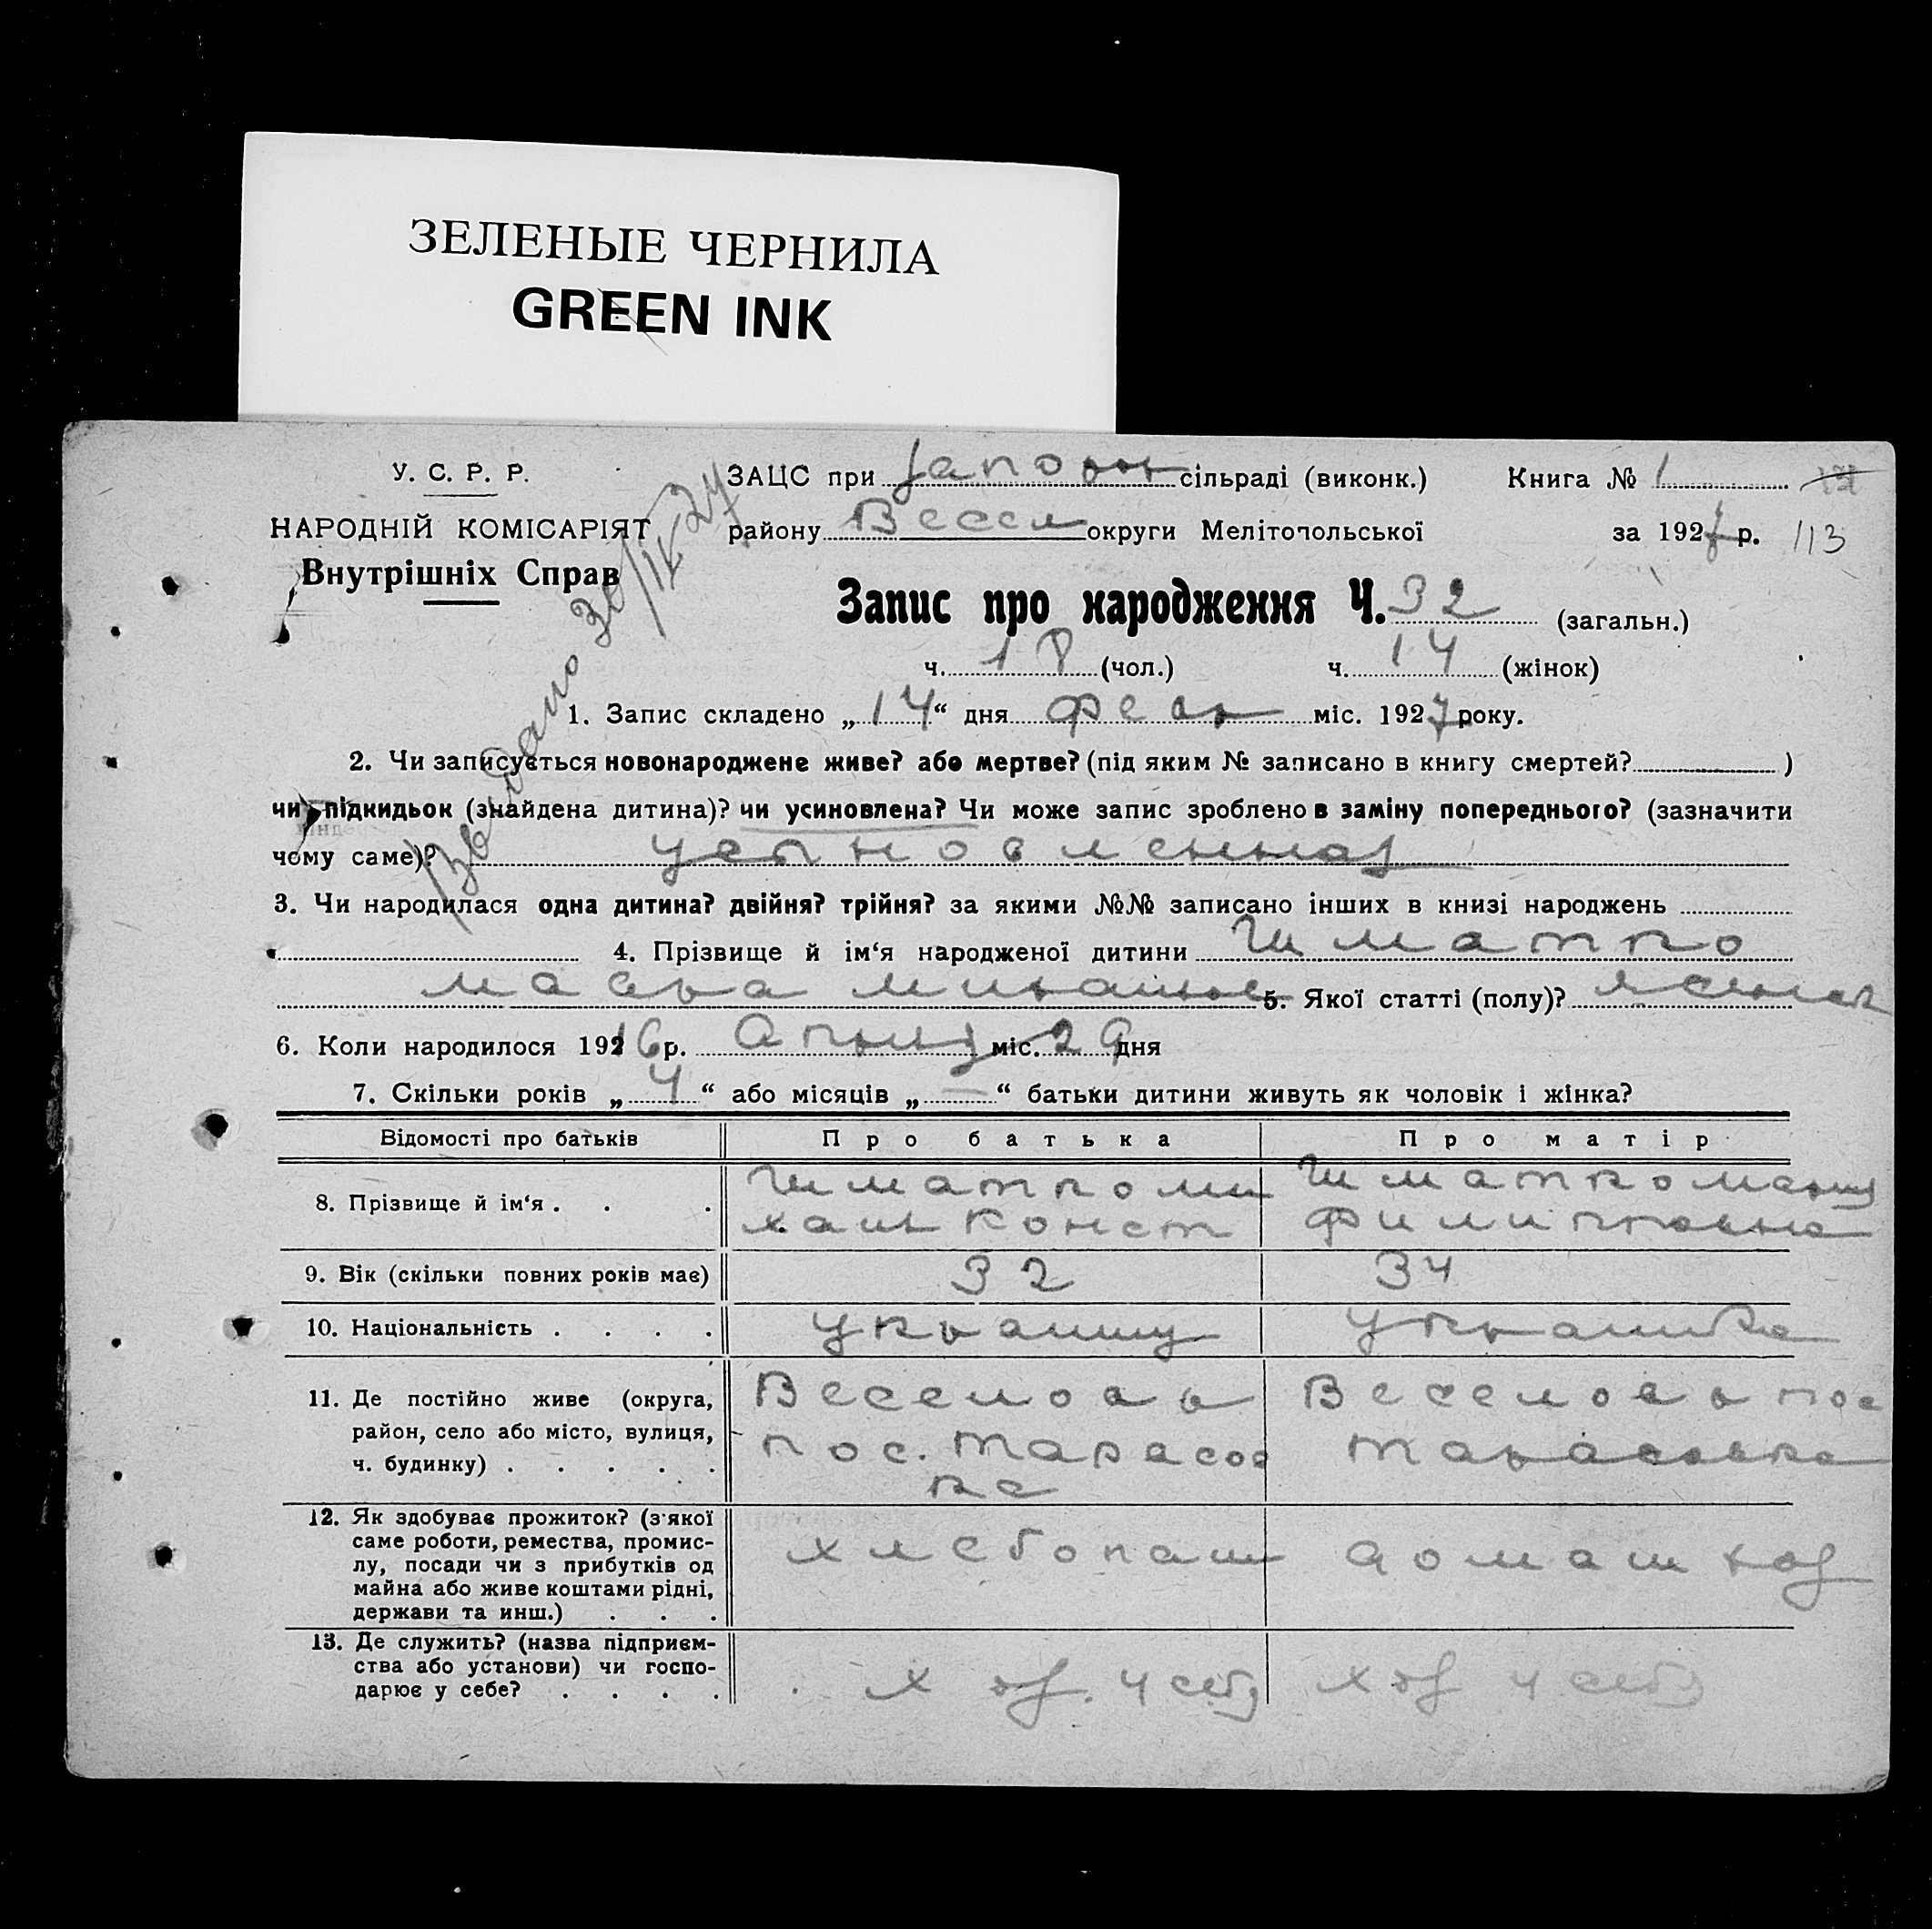 ЗЕЛЕНЫЕ ЧЕРНИЛА
GREEN INK
У. С. Р. Р.
НАРОДНІЙ КОМІСАРІЯТ
Внутрішніх Справ
ЗАЦС при сільраді (виконк.) Книга № 1
району Весел округи Мелітопольської за 1927 р. 113
Запис про народження Ч. 32 (загальн.)
ч. 18 (чол.) ч. 14 (жінок)
1. Запис складено „14“ дня февр міс. 1927 року.
2. Чи записується новонароджене живе? або мертве? (під яким № записано в книгу смертей? )
чи підкидьок (знайдена дитина)? чи усиновлена? Чи може запис зроблено в заміну попереднього? (зазначити
чому саме)? усыновленная
3. Чи народилася одна дитина? двійня? трійня? за якими №№ записано інших в книзі народжень
4. Прізвище й ім‘я народженої дитини Шматко
5. Якої статті (полу)?
6. Коли народилося 1926 р. міс. 29 дня
7. Скільки років „4“ або місяців „–“ батьки дитини живуть як чоловік і жінка?
Відомості про батьків Про батька Про матір
8. Прізвище й ім‘я . . . Шматко Ми Шматко
хаил Конст Филипповна
9. Вік (скільки повних років має) 32 34
10. Національність . . . . украинец украинка
11. Де постійно живе (округа, Веселовр Веселовр пос
район, село або місто, вулиця, пос. Тарасов Тарасовка
ч. будинку) . . . . . ка
12. Як здобуває прожиток? (з якої
саме роботи, ремества, промис-
лу, посади чи з прибутків од хлебопаш домаш хоз
майна або живе коштами рідні,
держави та инш.) . . .
13. Де служить? (назва підприєм-
ства або установи) чи госпо-
дарює у себе? . . . . хоз. у себя хоз у себя